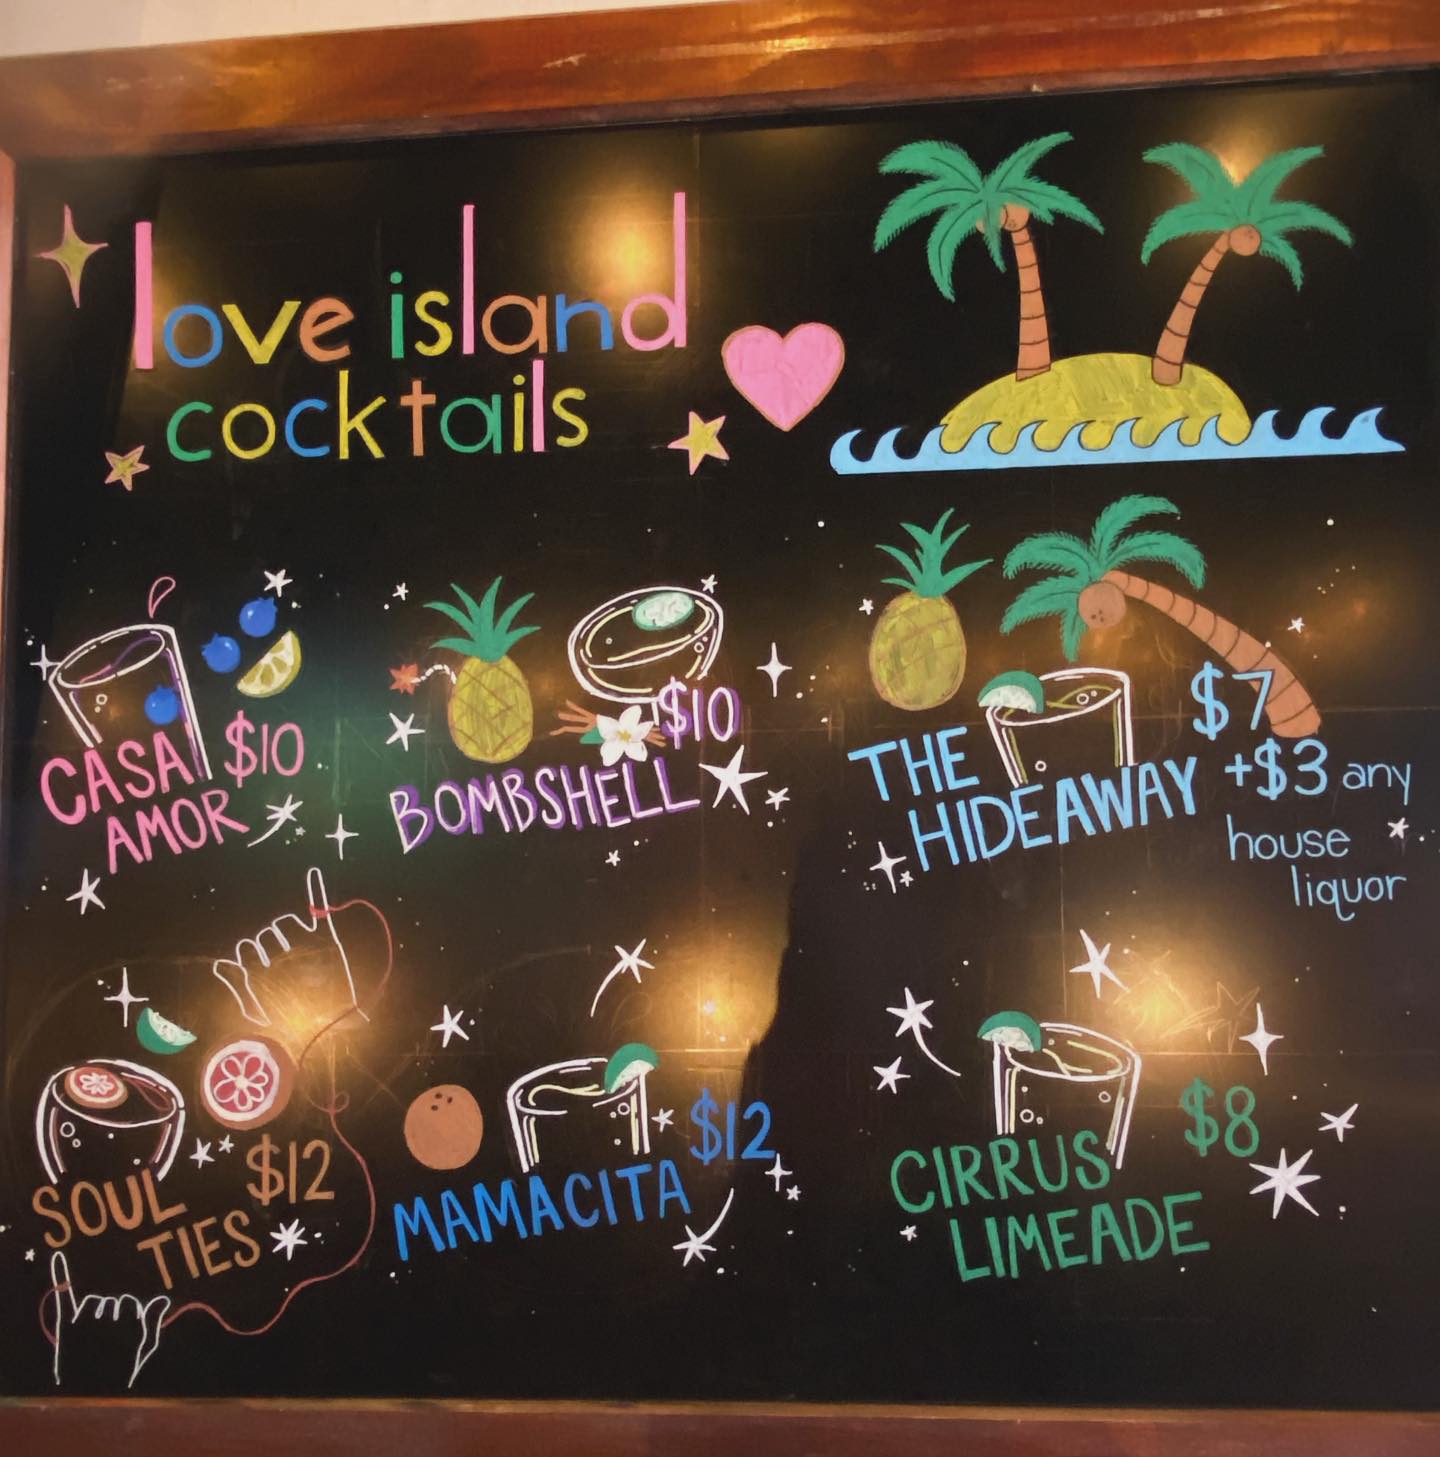 love island
cocktails
CASA $10
AMOR
$10
BOMBSHELL
$7
THE +$3 any
HIDEAWAY
house
liquor
SOUL $12
TIES
$12
MAMACITA
$8
CIRRUS
LIMEADE